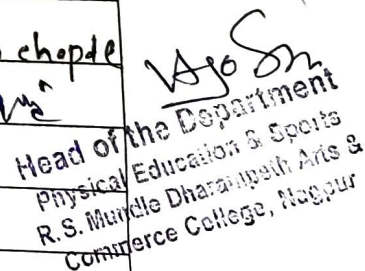 chopde
Head of the Department
Physical Education & Sports
R.S. Mundle Dharampeth Arts &
Commerce College, Nagpur